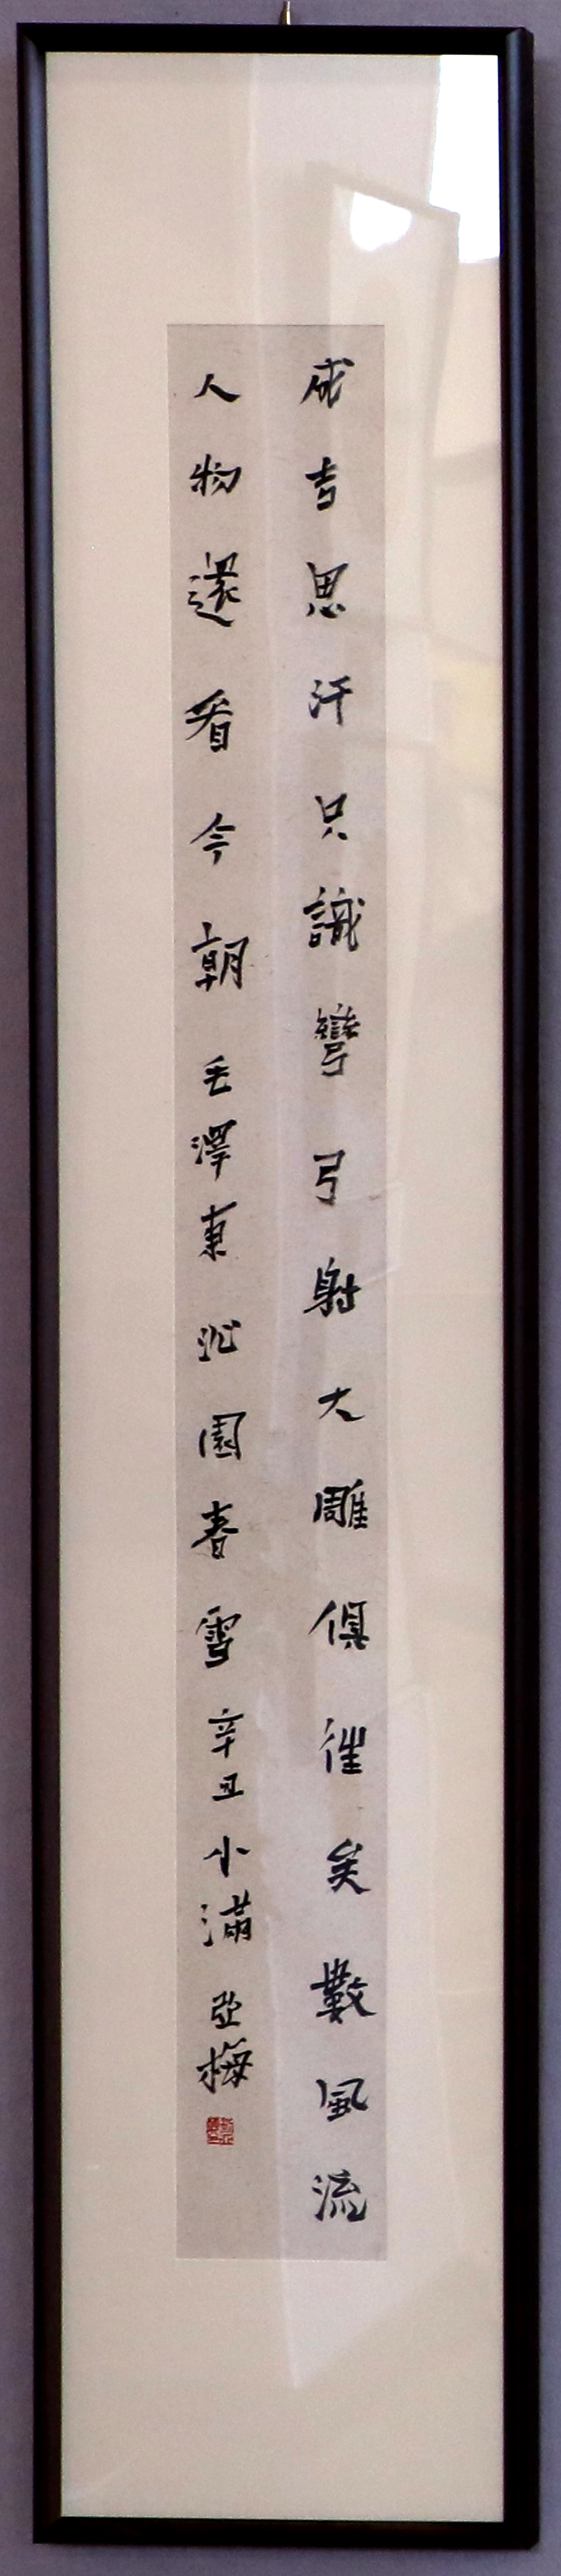 成吉思汗只識彎弓射大雕俱往矣數風流
人物還看今朝毛澤東沁園春雪辛丑小滿亞梅